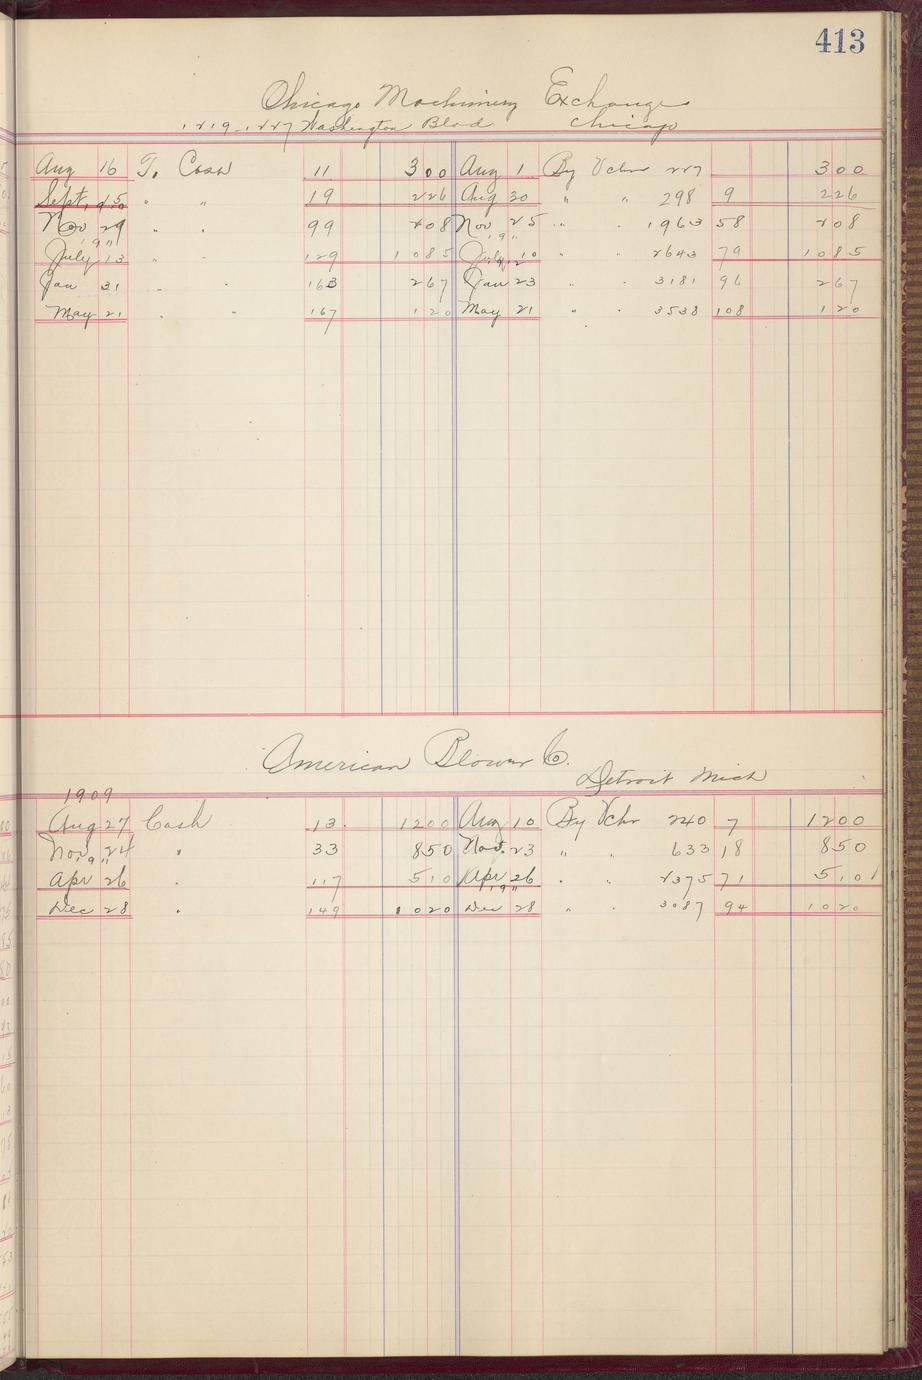 413
Chicago Machinery Exchange
1219-1227 Washington Blvd Chicago
Aug 16 To Cash 11 300 Aug 1 By Vchr 227 300
Sept, 15 " " 19 226 Aug 30 " " 298 9 226
Nov 29 " " 99 208 Nov. 25 " " 1963 58 208
July 13 " " 129 1085 July 10 " " 2643 79 1085
Jan 31 " " 163 267 Jan 23 3181 96 267
May 21 " " 167 120 May 21 " " 3538 108 120
American Blower Co.
Detroit Mich
1909
Aug 27 Cash 13. 1200 Aug 10 By Vchr 240 7 1200
Nov. 24 " 33 850 Nov. 23 " " 633 18 850
Apr 26 " 117 510 Apr 26 " " 2375 71 510
Dec 28 " 149 1020 Dec 28 " " 3087 94 1020